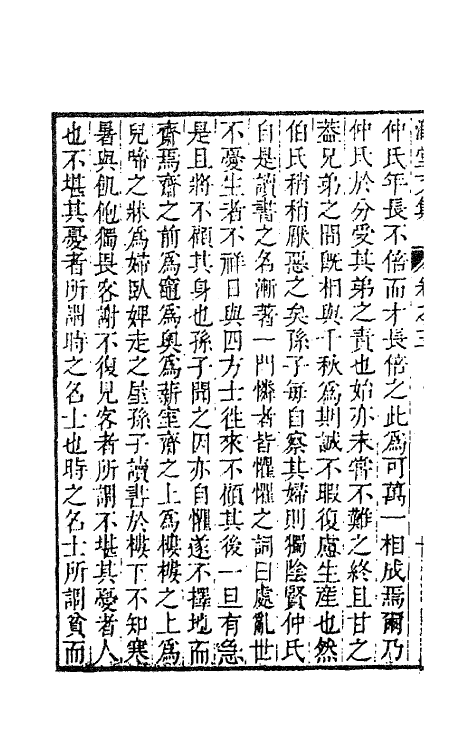 仲氏年長不倍而才長倍之此爲可萬一相成焉爾乃
仲氏於分受其弟之責也始亦未嘗不難之終且甘之
蓋兄弟之間旣相與千秋爲期誠不暇復慮生産也然
伯氏稍稍厭惡之矣孫子每自察其婦則獨陰賢仲氏
自是讀書之名漸著一門憐者皆懼懼之詞曰處亂世
不憂生者不祥日與四方士往來不顧其後一旦有急
是且將不顧其身也孫子聞之因亦自懼遂不擇地而
齋焉齋之前爲竈爲奥爲薪室齋之上爲樓樓之上爲
兒啼之牀爲婦臥婢走之星孫子讀書於樓下不知寒
暑與飢他獨畏客謝不復見客者所謂不堪其憂者人
也不堪其憂者所謂時之名士也時之名士所謂貧而